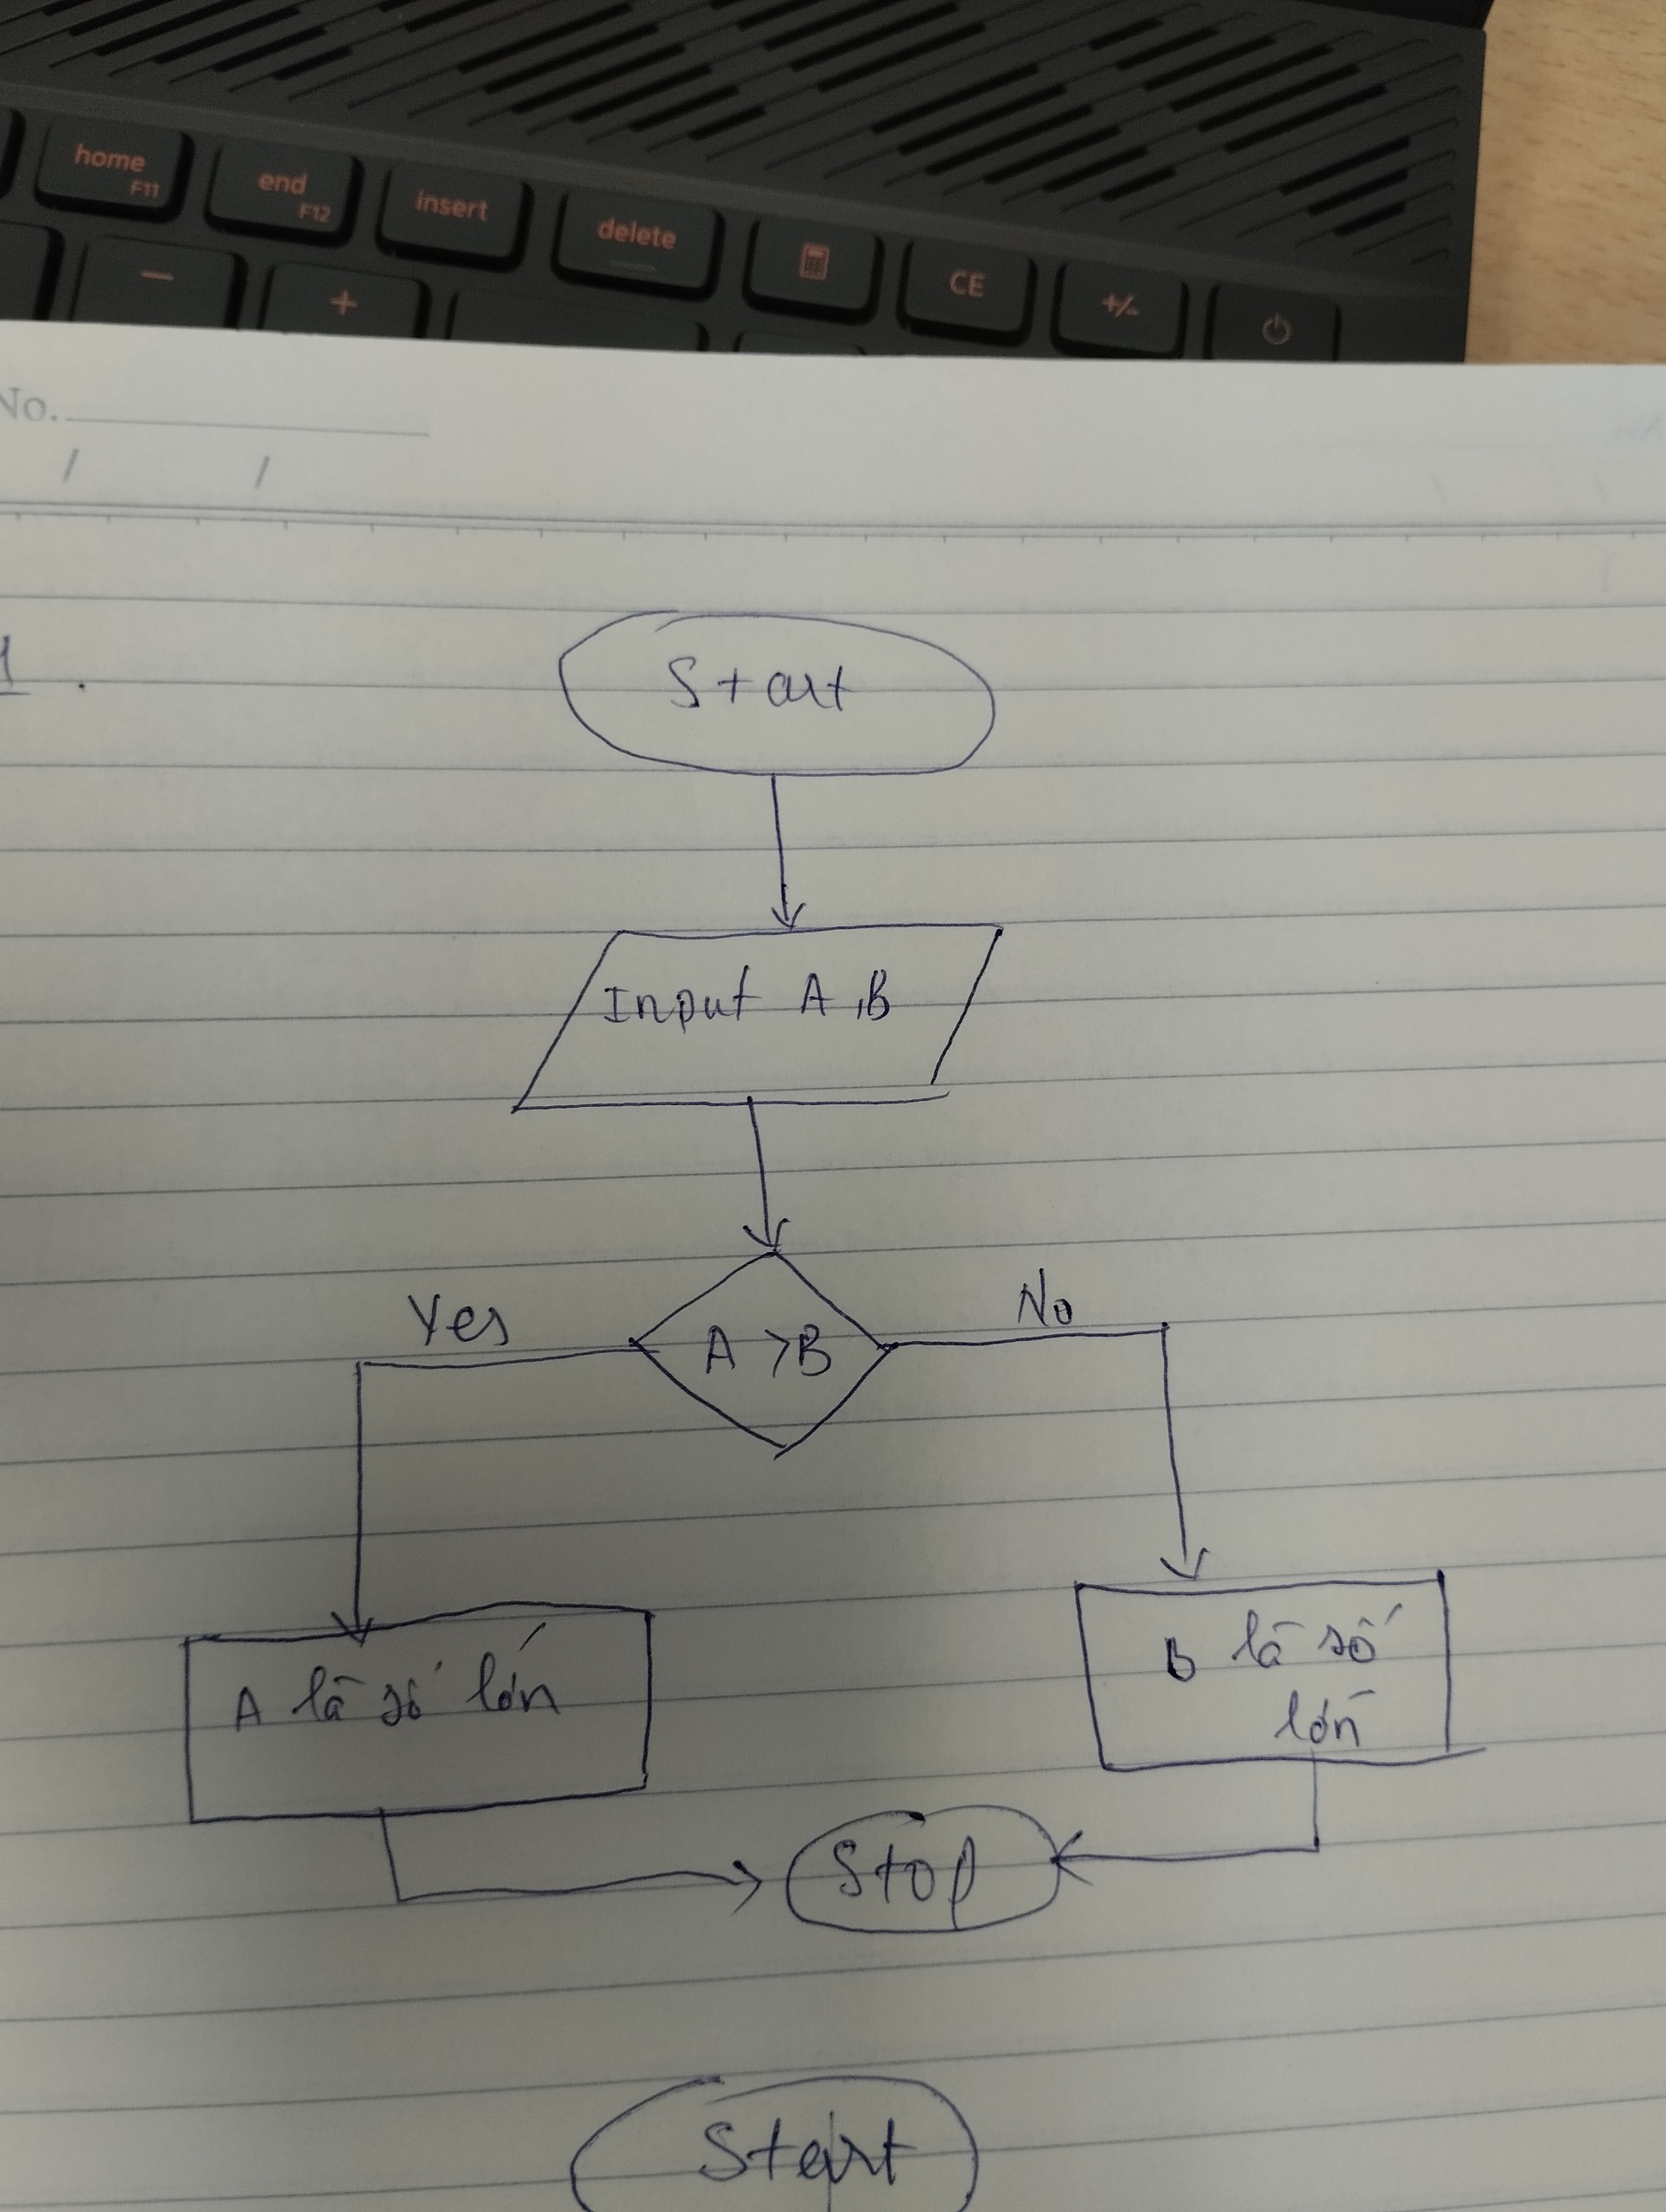 home
F11
end
F12
insert
delete
CE
+/-
−
+
No.
/ /
1.
Start
Input A,B
Yes
A >B
No
A là số lớn
B là số
lớn
Stop
Start